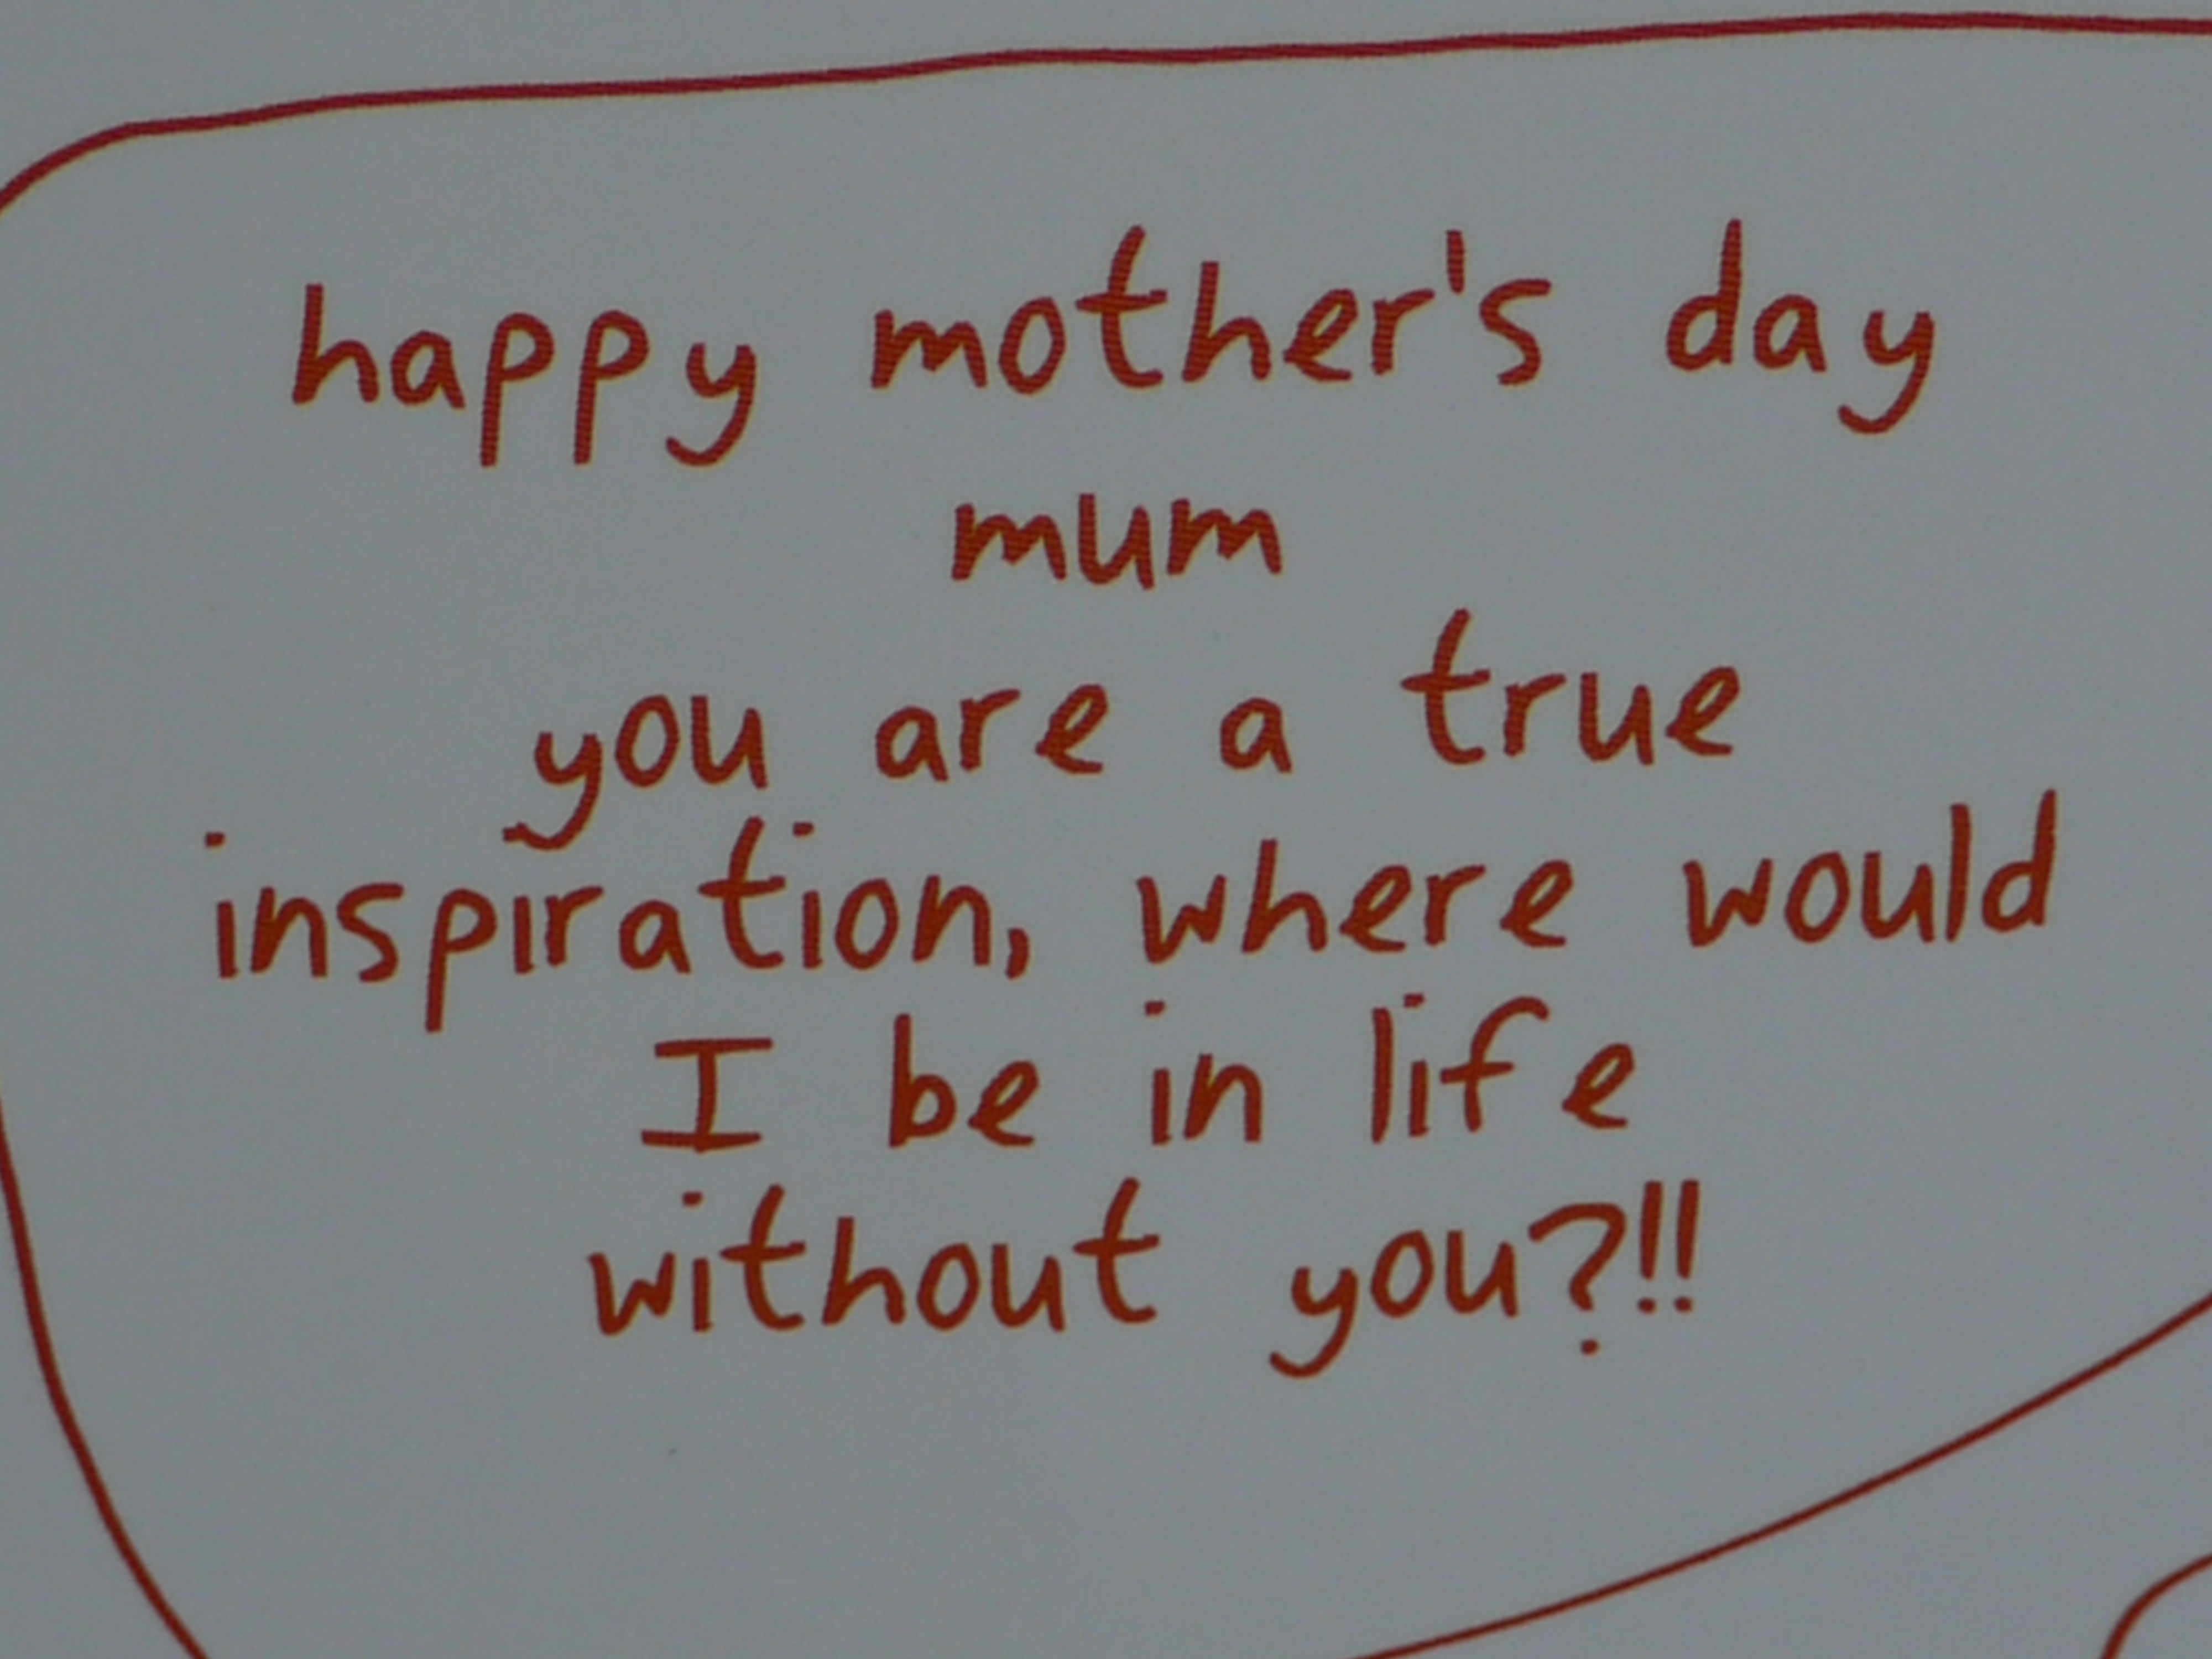 happy mother's day
mum
you are a true
inspiration, where would
I be in life
without you?!!